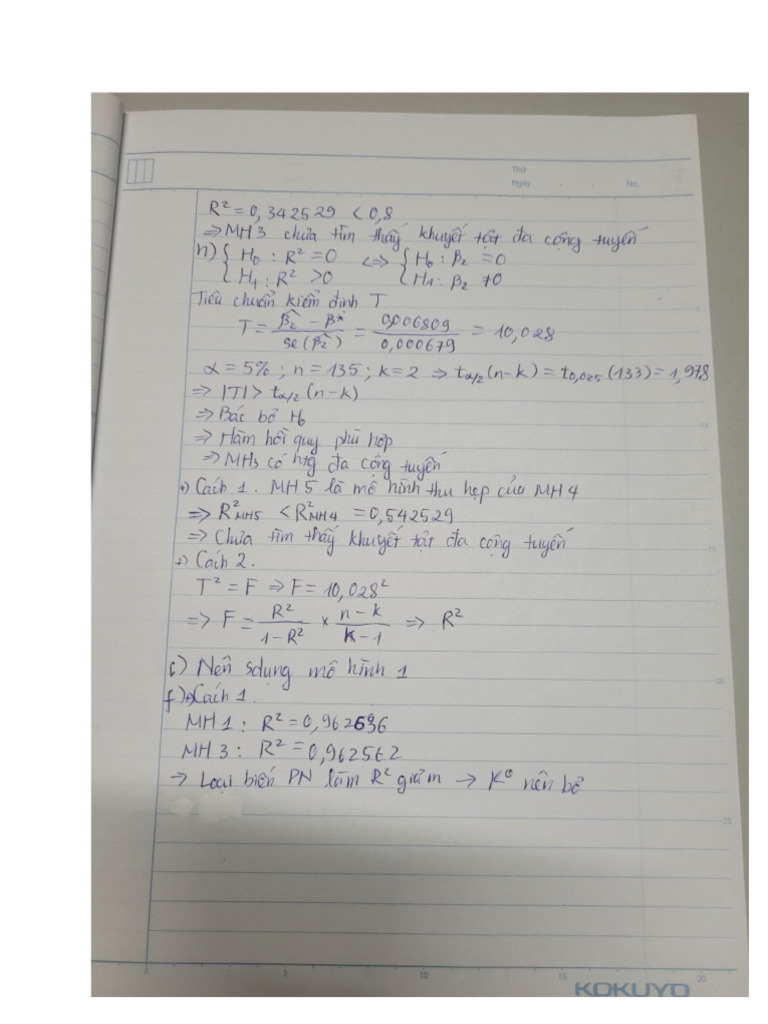 Thứ
Ngày . . No.
R² = 0,342529 < 0,8
⇒ MH 3 chưa tìm thấy khuyết tật đa cộng tuyến
n) { H₀ : R² = 0 ⇔ { H₀ : β₂ = 0
{ H₁ : R² > 0 { H₁ : β₂ ≠ 0
Tiêu chuẩn kiểm định T
T = (β̂₂ − β*) / se(β̂₂) = 0,006809 / 0,000679 = 10,028
α = 5% ; n = 135 ; k = 2 ⇒ tα/₂ (n-k) = t₀,₀₂₅ (133) = 1,978
⇒ |T| > tα/₂ (n-k)
⇒ Bác bỏ H₀
⇒ Hàm hồi quy phù hợp
⇒ MH₃ có htg đa cộng tuyến
+) Cách 1. MH 5 là mô hình thu hẹp của MH 4
⇒ R²MH5 < R²MH4 = 0,542529
⇒ Chưa tìm thấy khuyết tật đa cộng tuyến
+) Cách 2.
T² = F ⇒ F = 10,028²
⇒ F = R² / (1-R²) × (n-k) / (k-1) ⇒ R²
c) Nên sdụng mô hình 1
f) +) Cách 1.
MH 1 : R² = 0,962636
MH 3 : R² = 0,962562
→ Loại biến PN làm R² giảm → K° nên bỏ
0 5 10 15 20
KOKUYO